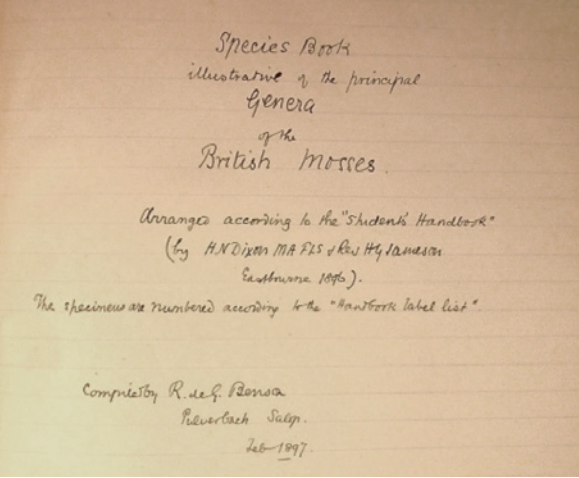 Species Book
illustrative of the principal
Genera
of the
British Mosses.
Arranged according to the "Student's Handbook"
(by H N Dixon MA FLS & Rev H G Jameson
Eastbourne 1896).
The specimens are numbered according to the "Handbook label list".
Compiled by R. de G. Benson
Pulverbach Salop.
Feb 1897.